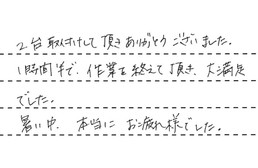 2台取付けして頂きありがとうございました。
1時間半で、作業を終えて頂き、大満足
でした。
暑い中、本当にお疲れ様でした。